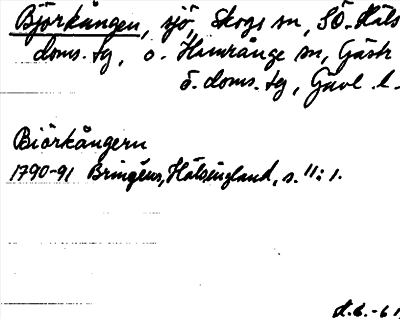 Björkången, sjö, Skogs sn, SÖ. Häls
doms. tg, o. Hamrånge sn, Gästr
ö. doms. tg, Gävl. l.
Biörkångern
1790-91 Bringéus, Hälsingland, s. 11:1.